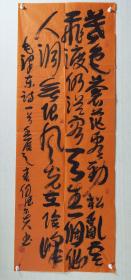 暮色苍茫看劲松乱云
飞渡仍从容天生一个仙
人洞无限风光在险峰
毛泽东诗一首